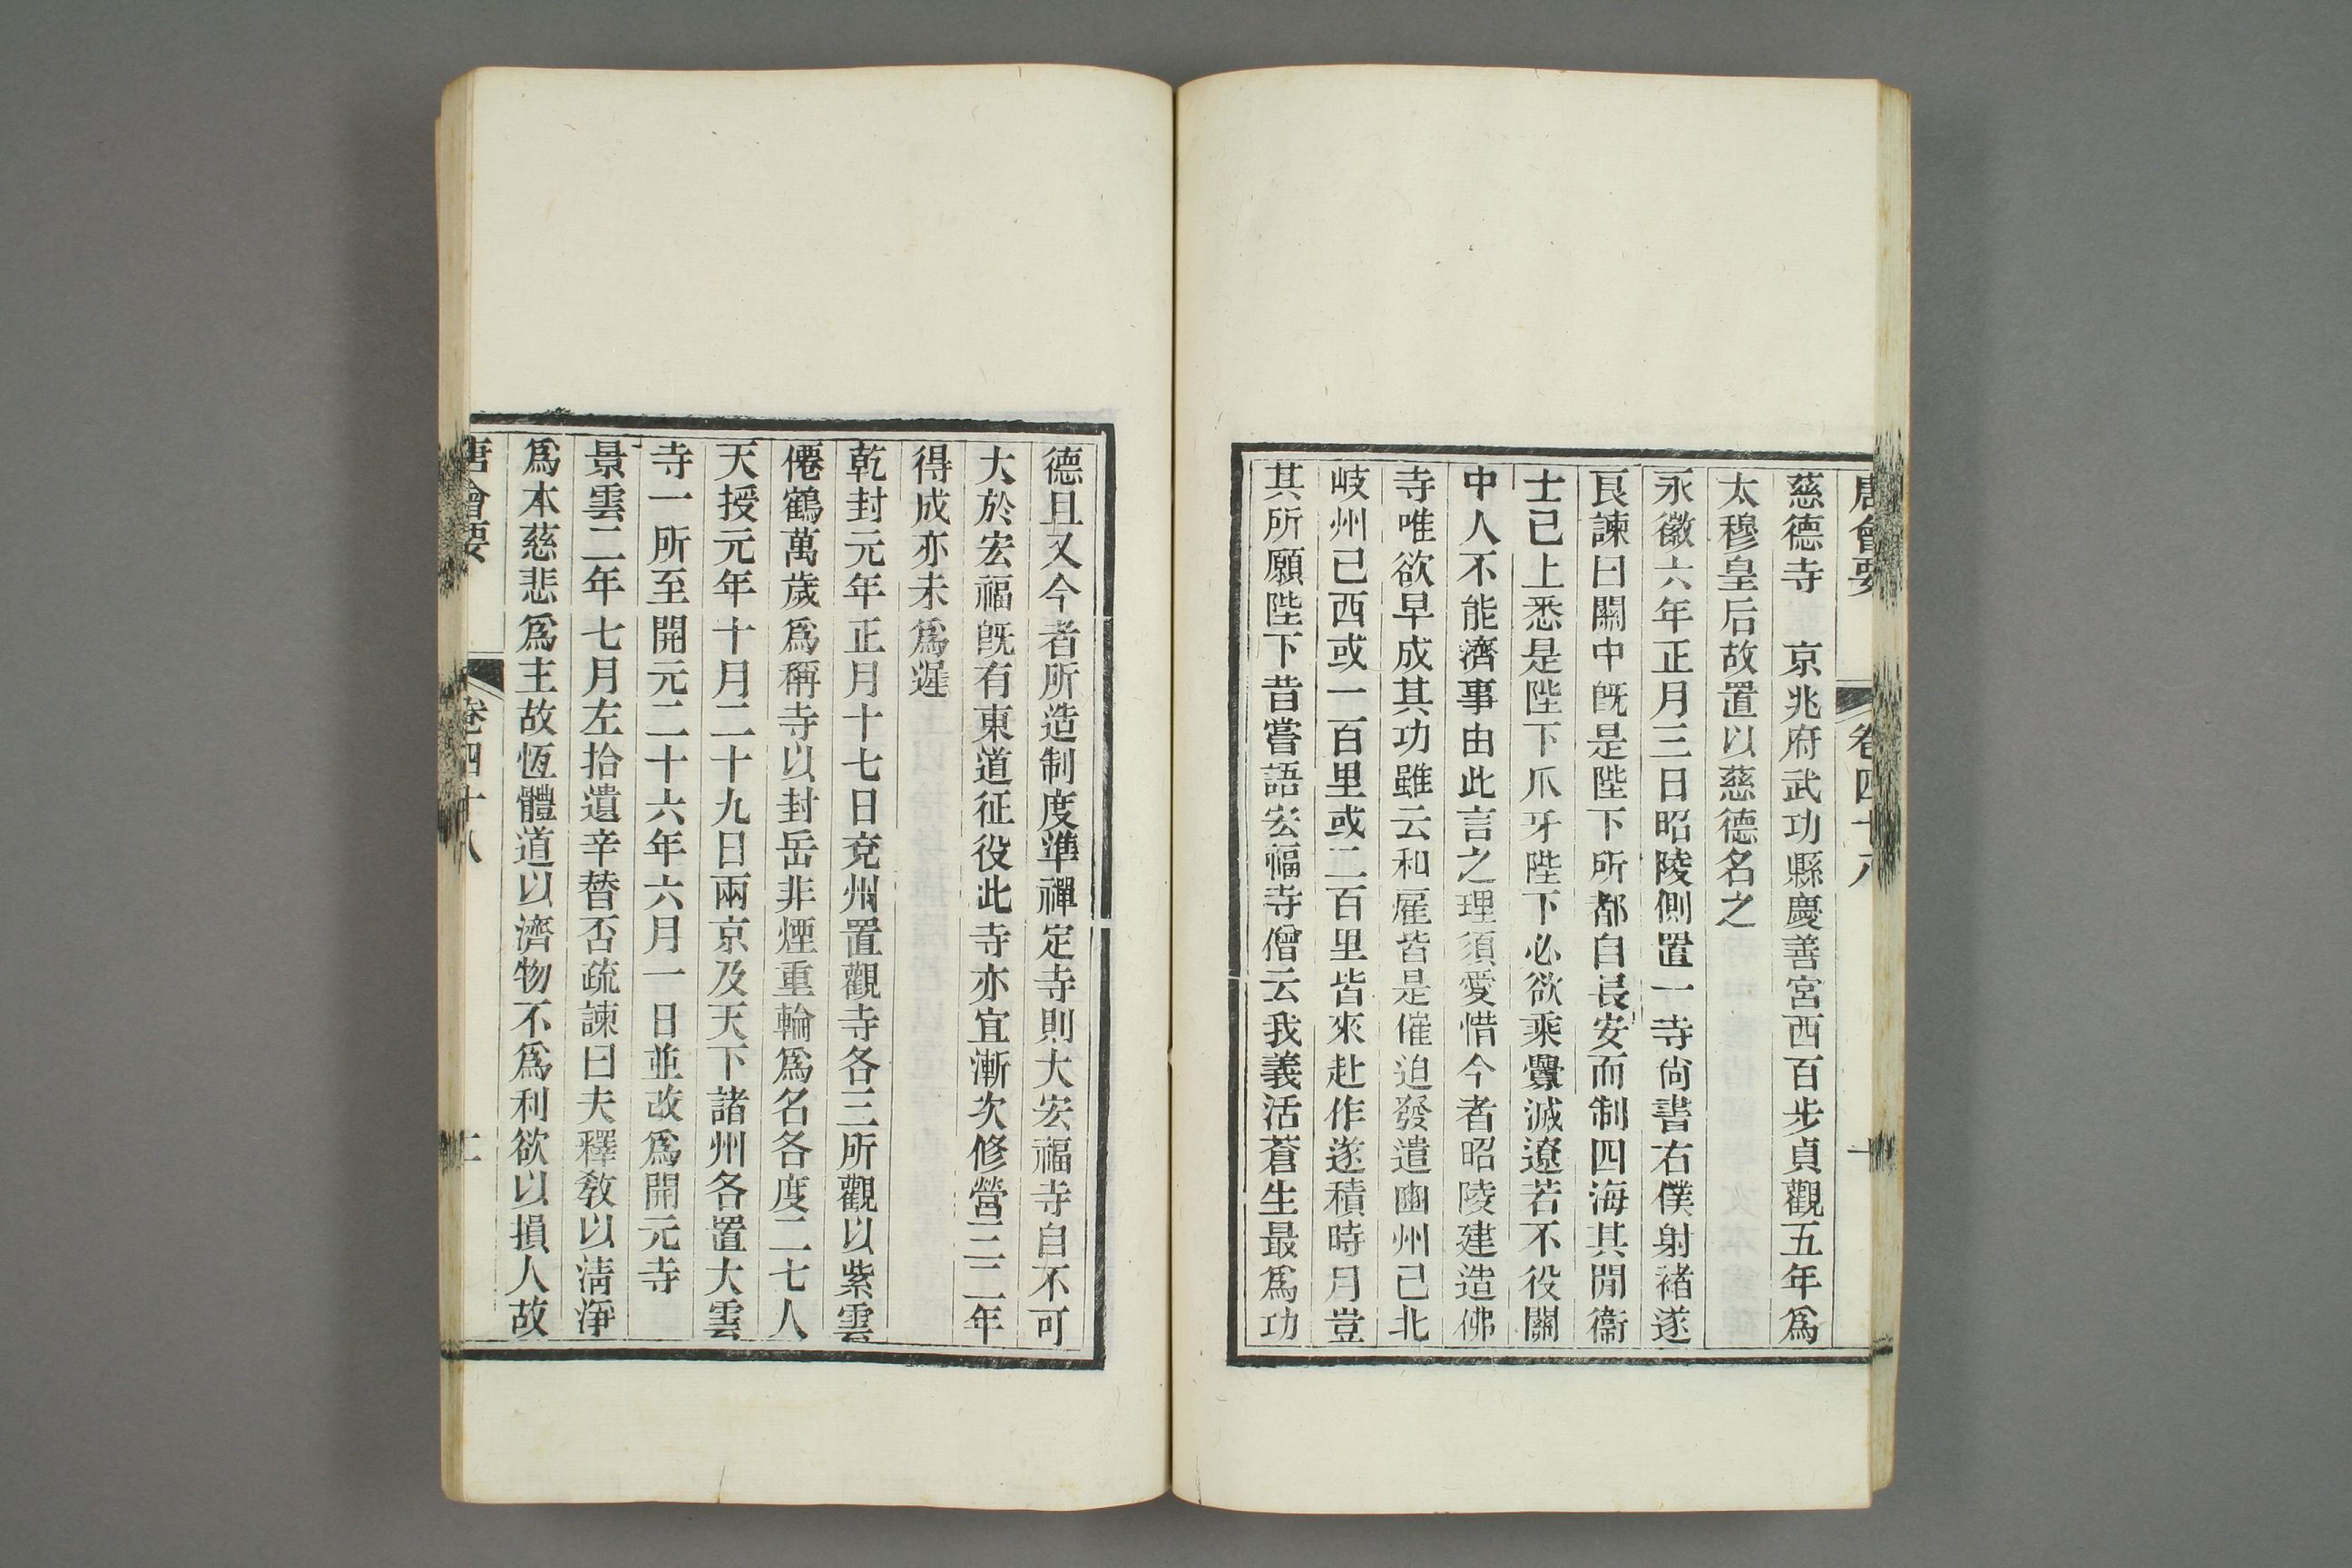 唐會要 卷四十八
慈德寺 京兆府武功縣慶善宮西百步貞觀五年爲
太穆皇后故置以慈德名之
永徽六年正月三日昭陵側置一寺尙書右僕射褚遂
良諫曰關中旣是陛下所都自長安而制四海其閒衞
士已上悉是陛下爪牙陛下必欲乘釁滅遼若不役關
中人不能濟事由此言之理須愛惜今者昭陵建造佛
寺唯欲早成其功雖云和雇皆是催迫發遣豳州已北
岐州已西或一百里或二百里皆來赴作遂積時月豈
其所願陛下昔嘗語宏福寺僧云我義活蒼生最爲功
德且又今者所造制度準禪定寺則大宏福寺自不可
大於宏福旣有東道征役此寺亦宜漸次修營三二年
得成亦未爲遲
乾封元年正月十七日兗州置觀寺各三所觀以紫雲
僊鶴萬歲爲稱寺以封岳非煙重輪爲名各度二七人
天授元年十月二十九日兩京及天下諸州各置大雲
寺一所至開元二十六年六月一日並改爲開元寺
景雲二年七月左拾遺辛替否疏諫曰夫釋敎以淸淨
爲本慈悲爲主故恆體道以濟物不爲利欲以損人故
唐會要 卷四十八